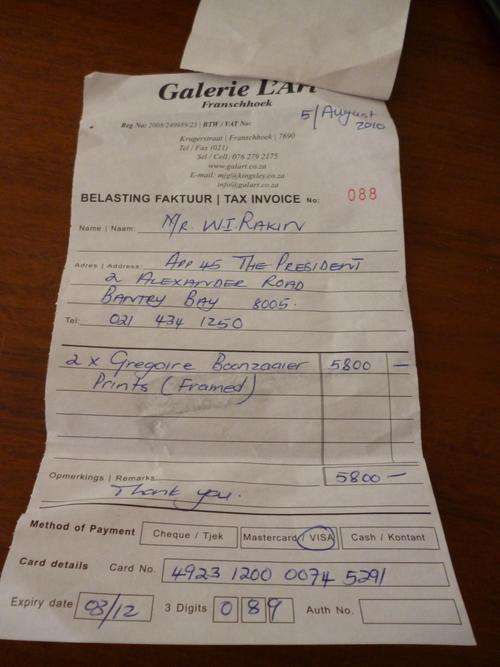 Galerie L'Art
Franschhoek
5/August 2010
Reg No: 2008/249889/23 | BTW / VAT No:
Krugerstraat | Franschhoek | 7690
Tel / Fax (021)
Sel / Cell: 076 279 2175
www.galart.co.za
E-mail: mjg@kingsley.co.za
info@galart.co.za
BELASTING FAKTUUR | TAX INVOICE No: 088
Name | Naam: Mr. W.I. Rakin
Adres | Address: App 45 The President
2 Alexander Road
Bantry Bay 8005.
Tel: 021 434 1250
2 x Gregoire Boonzaaier 5800 —
Prints (Framed)
5800 —
Opmerkings | Remarks:
Thank you.
Method of Payment Cheque / Tjek Mastercard / VISA Cash / Kontant
Card details Card No. 4923 1200 0074 5291
Expiry date 03/12 3 Digits 0 8 9 Auth No.